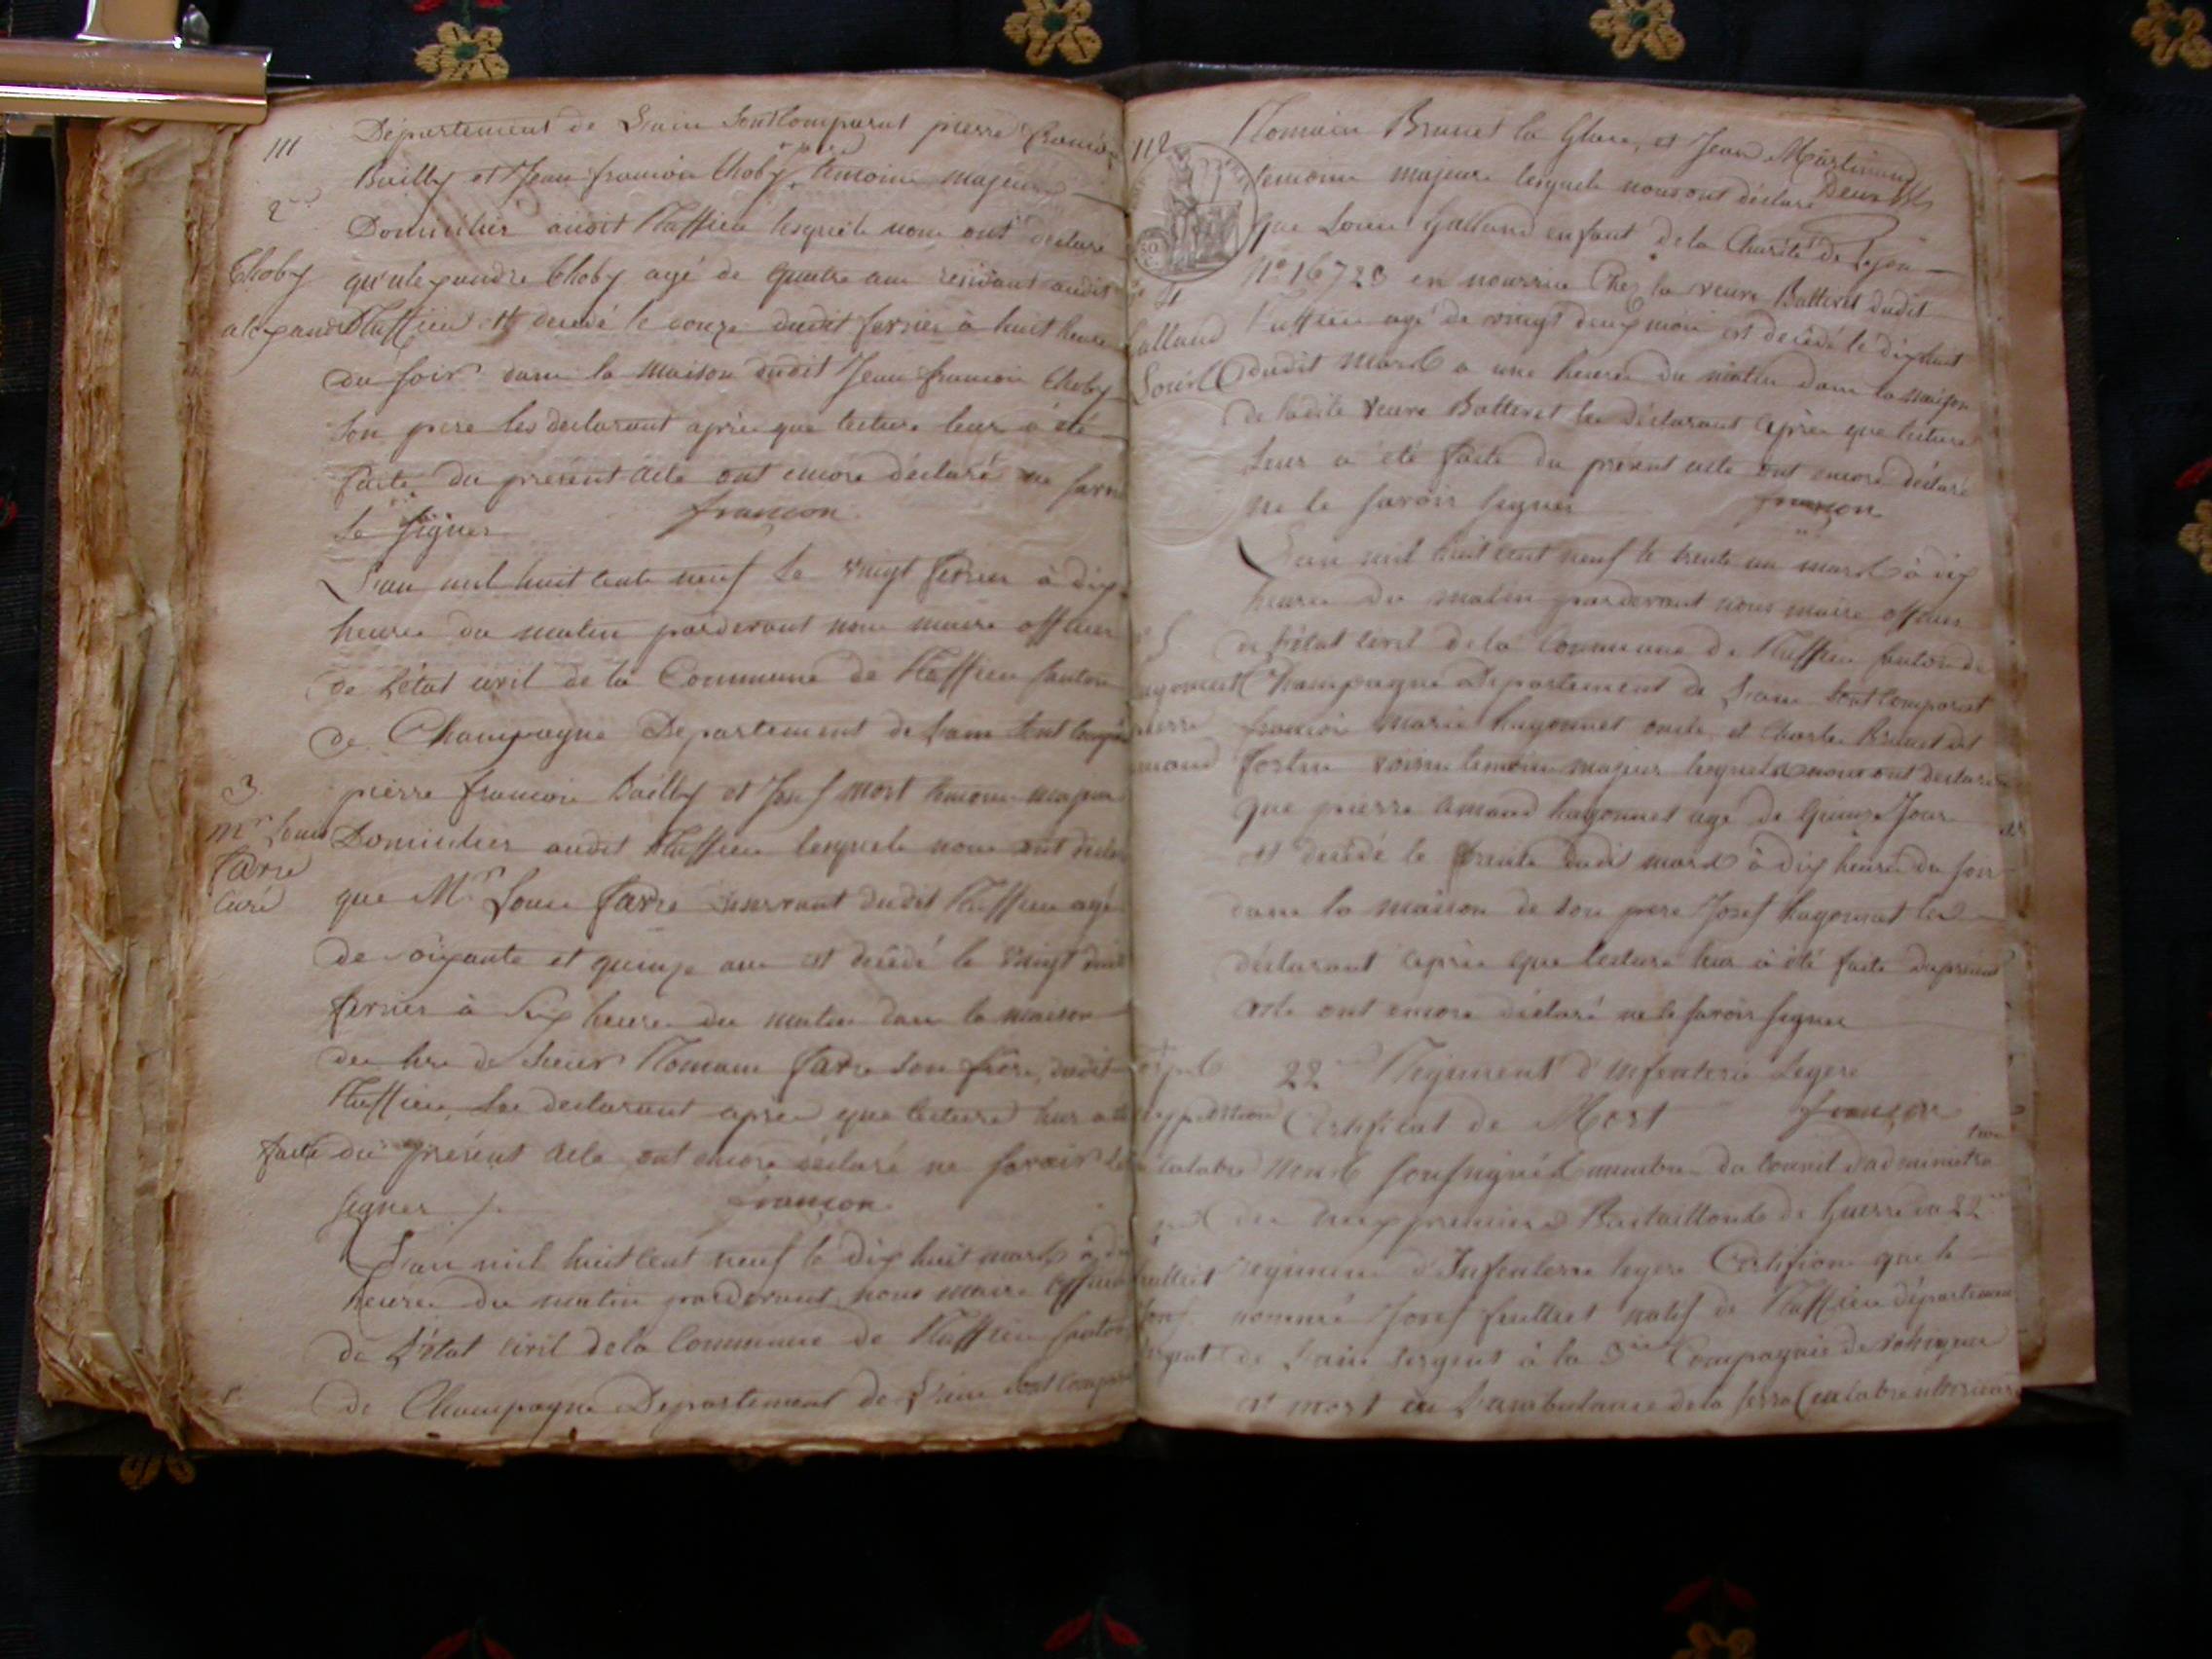 111
Département de Lain sont Comparut pierre françois
Bailly et Jean françois Choby temoins majeurs
2
Domiciliés audit Ruffieu lesquels nous ont déclaré
Choby
alexandre
qu'alexandre Choby agé de quatre ans résidant audit
Ruffieu est decedé le onze dudit fevrier à huit heures
du soir dans la maison dudit Jean françois Choby
son pere les declarant après que lecture leur a été
faite du present acte ont encore déclaré ne savoir
le signer françon
L'an mil huit cent neuf le vingt fevrier à dix
heures du matin pardevant nous maire officier
de l'état civil de la Commune de Ruffieu canton
de Champagne Departement de Lain sont comparut
3
Mr Louis
favre
Curé
pierre françois Bailly et Josef mort temoins majeurs
Domiciliés audit Ruffieu lesquels nous ont déclaré
que Mr Louis favre desservant dudit Ruffieu agé
de soixante et quinze ans est decedé le vingt dudit
fevrier à six heures du matin dans la maison
de sieur Romain favre son frère, dudit
Ruffieu, les declarant après que lecture leur a été
faite du présent acte ont encore déclaré ne savoir le
signer françon
L'an mil huit cent neuf le dix huit mars à dix
heures du matin pardevant nous maire officier
de l'état civil de la Commune de Ruffieu canton
de Champagne Departement de Lain sont comparut
112
Romain Brunet la Glare, et Jean Martinand
temoins majeurs lesquels nous ont déclaré
que Louis Galland enfant de la Charité de Lyon
4
Galland
Louis
N° 16723 en nourrice Chez la veuve Batteret dudit
Ruffieu agé de vingt deux mois est decédé le dix huit
dudit mars a une heures du matin dans la maison
de ladite veuve Batteret les déclarant après que lecture
leur a été faite du présent acte ont encore déclaré
ne le savoir signer françon
L'an mil huit cent neuf le trente un mars à dix
heures du matin pardevant nous maire officier
5
de l'état civil de la Commune de Ruffieu canton de
hugonnet
pierre
amand
Champagne Departement de Lain sont comparut
françois marie hugonnet oncle, et Charles Brunet dit
voisin temoins majeurs lesquels nous ont déclaré
que pierre amand hugonnet agé de quinze Jours
est decédé le trente dudit mars à dix heures du soir
dans la maison de son pere Josef hugonnet les
déclarant après que lecture leur a été faite du présent
acte ont encore déclaré ne le savoir signer
22me Régiment d'infanterie Légere
expedition
Certificat de Mort françon
Nous soussignés membres du Conseil d'administration
des deux premiers Bataillons de Guerre du 22me
régiment d'Infanterie legere Certifions que le
nommé Josef feuillet natif de Ruffieu département
Sergent
de Lain sergent à la 3me Compagnie de voltigeurs
est mort en l'ambulance de la serra Calabre ulterieure